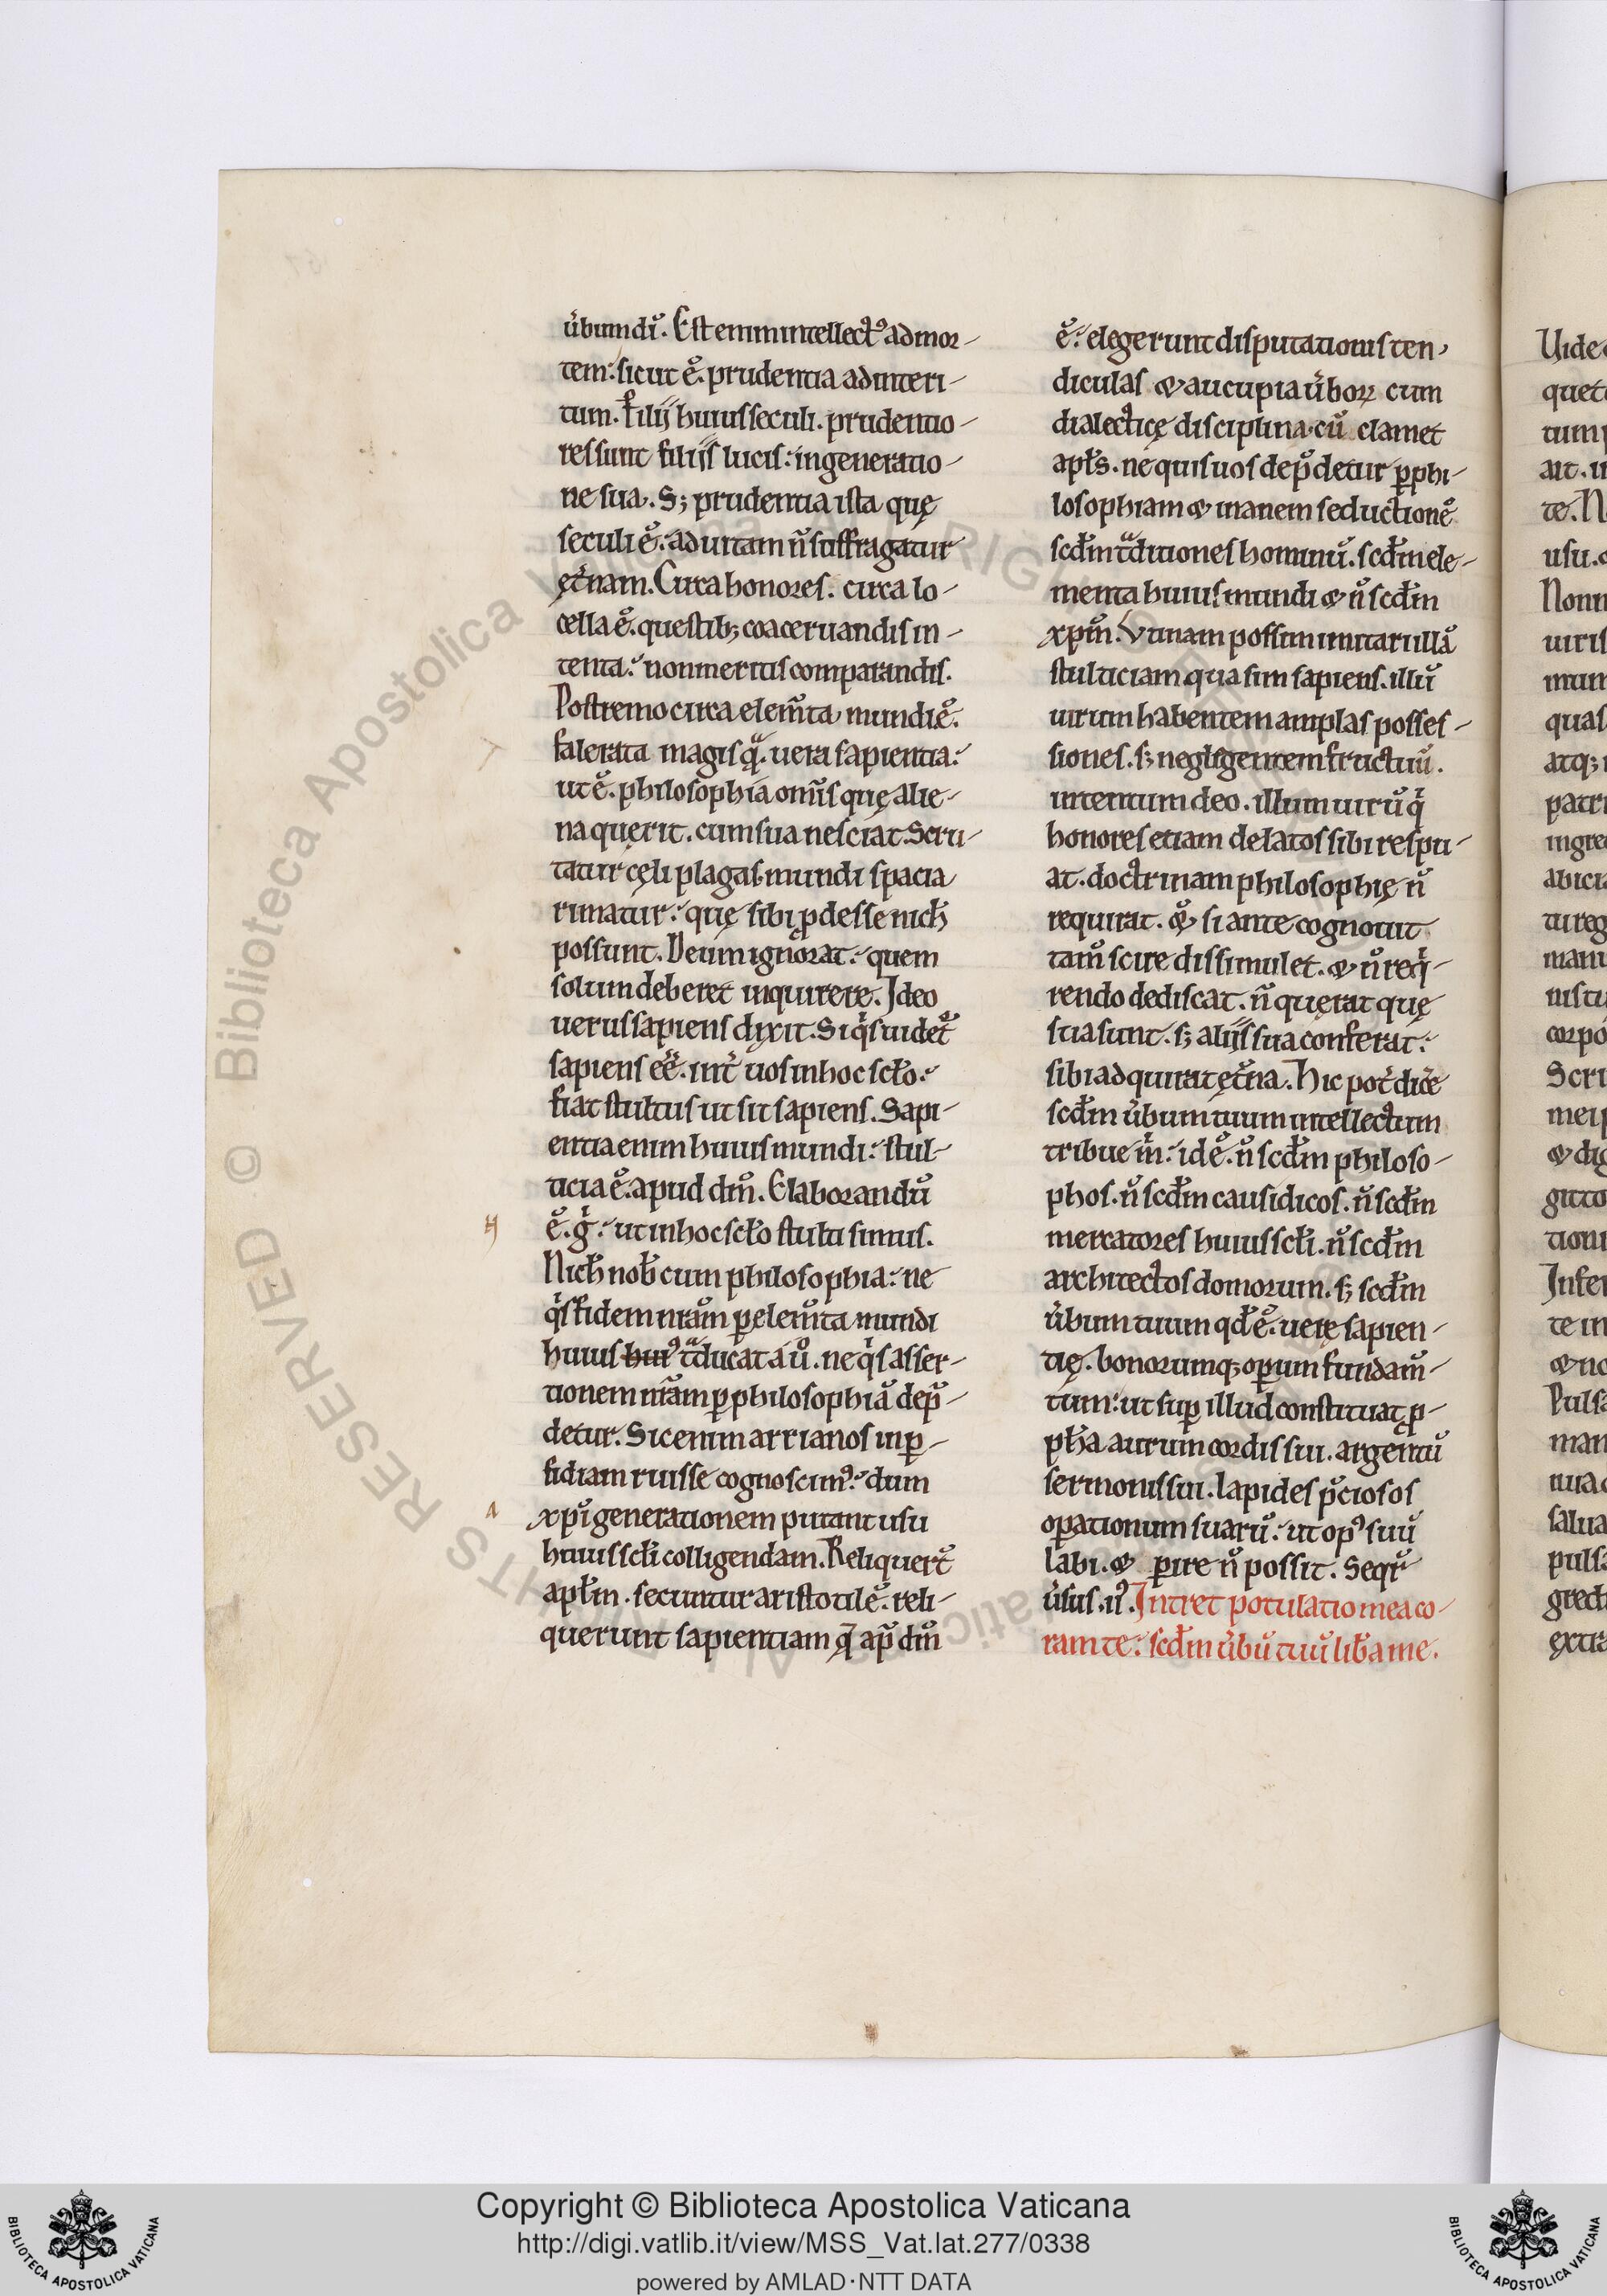 ūbum dī. Est enim intellect᷒ ad mor-
tem: sicut ē. prudentia ad interi-
tum. Filij huius seculi. prudentio-
res sunt filijs lucis: in generatio-
ne sua. S; prudentia ista quę
seculi ē: ad uitam n̄ suffragatur
ęt̄nam. Circa honores. circa lo-
cella ē. questib; coaceruandis in-
tenta: non meritis comparandis.
Postremo circa elem̄ta mundi ē.
falerata magis qͣ. uera sapientia:
ut ē. philosophia om̄is quę alie-
na quęrit. cum sua nesciat. Scru-
tatur cęli plagas. mundi spacia
rimatur: quę sibi ꝓdesse nich̄
possunt. Deum ignorat: quem
solum deberet inquirere. Ideo
uerus sapiens dixit. Si qͥs uidet̄
sapiens eē. int̄ uos in hoc scło:
fiat stultus ut sit sapiens. Sapi-
entia enim huius mundi: stul-
ticia ē. apud dm̄. Elaborandū
ē. gͥ: ut in hoc scło stulti simus.
Nich̄ nob̄ cum philosophia: ne
qͥs fidem nrām ꝑ elem̄ta mundi
huius hui᷒ tͣducat a uͦ. ne qͥs asser-
tionem nrām ꝑ philosophiā dep̄-
detur. Sic enim arrianos in ꝑ-
fidiam ruisse cognoscim᷒: dum
xp̄i generationem putant usu
huius scłi colligendam. Reliquert̄
apłm. secuntur aristotilē. reli-
querunt sapientiam q̄ ap̄ dm̄
ē: elegerunt disputationis ten-
diculas & aucupia ūboꝝ cum
dialecticę disciplina. cū clamet
apłs. ne qui suos dep̄detur ꝑ phi-
losophiam & inanem seductionē
scd̄m tͣditiones hominū. scd̄m ele-
menta huius mundi & n̄ scd̄m
xpm̄. Utinam possim imitari illā
stulticiam qua sim sapiens. illū
uirum habentem amplas posses-
siones. s; negligentem fructuū.
intentum deo. illum uirū qͥ
honores etiam delatos sibi respu-
at. doctrinam philosophię n̄
requirat. & si ante cognouit
tam̄ scire dissimulet. & n̄ reqͥ-
rendo dediscat. n̄ quęrat quę
sua sunt. s; alijs sua conferat:
sibi adquirat ęt̄na. Hic pot̄ dic̄e
scd̄m ūbum tuum intellectum
tribue m̄: id ē. n̄ scd̄m philoso-
phos. n̄ scd̄m causidicos. n̄ scd̄m
mercatores huius scłi. n̄ scd̄m
architectos domorum. s; scd̄m
ūbum tuum qd̄ ē. uerę sapien-
tię. bonorumq; oꝑum fundam̄-
tum: ut suꝑ illud constituat ꝓ-
ph̄a aurum cordis sui. argentū
sermonis sui. lapides p̄ciosos
oꝑationum suarū: ut op᷒ suū
labi. & ꝑire n̄ possit. Seqr̄
ūsus. ij᷒. Intret potulatio mea co-
ram te: scd̄m ūbū tuū lib̄a me.
Copyright © Biblioteca Apostolica Vaticana
http://digi.vatlib.it/view/MSS_Vat.lat.277/0338
powered by AMLAD·NTT DATA